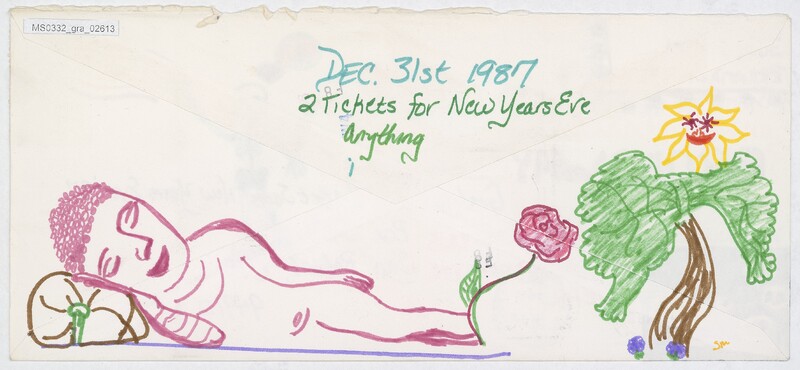 MS0332_gra_02613
DEC. 31st 1987
2 Tickets for New Years Eve
Anything
sm